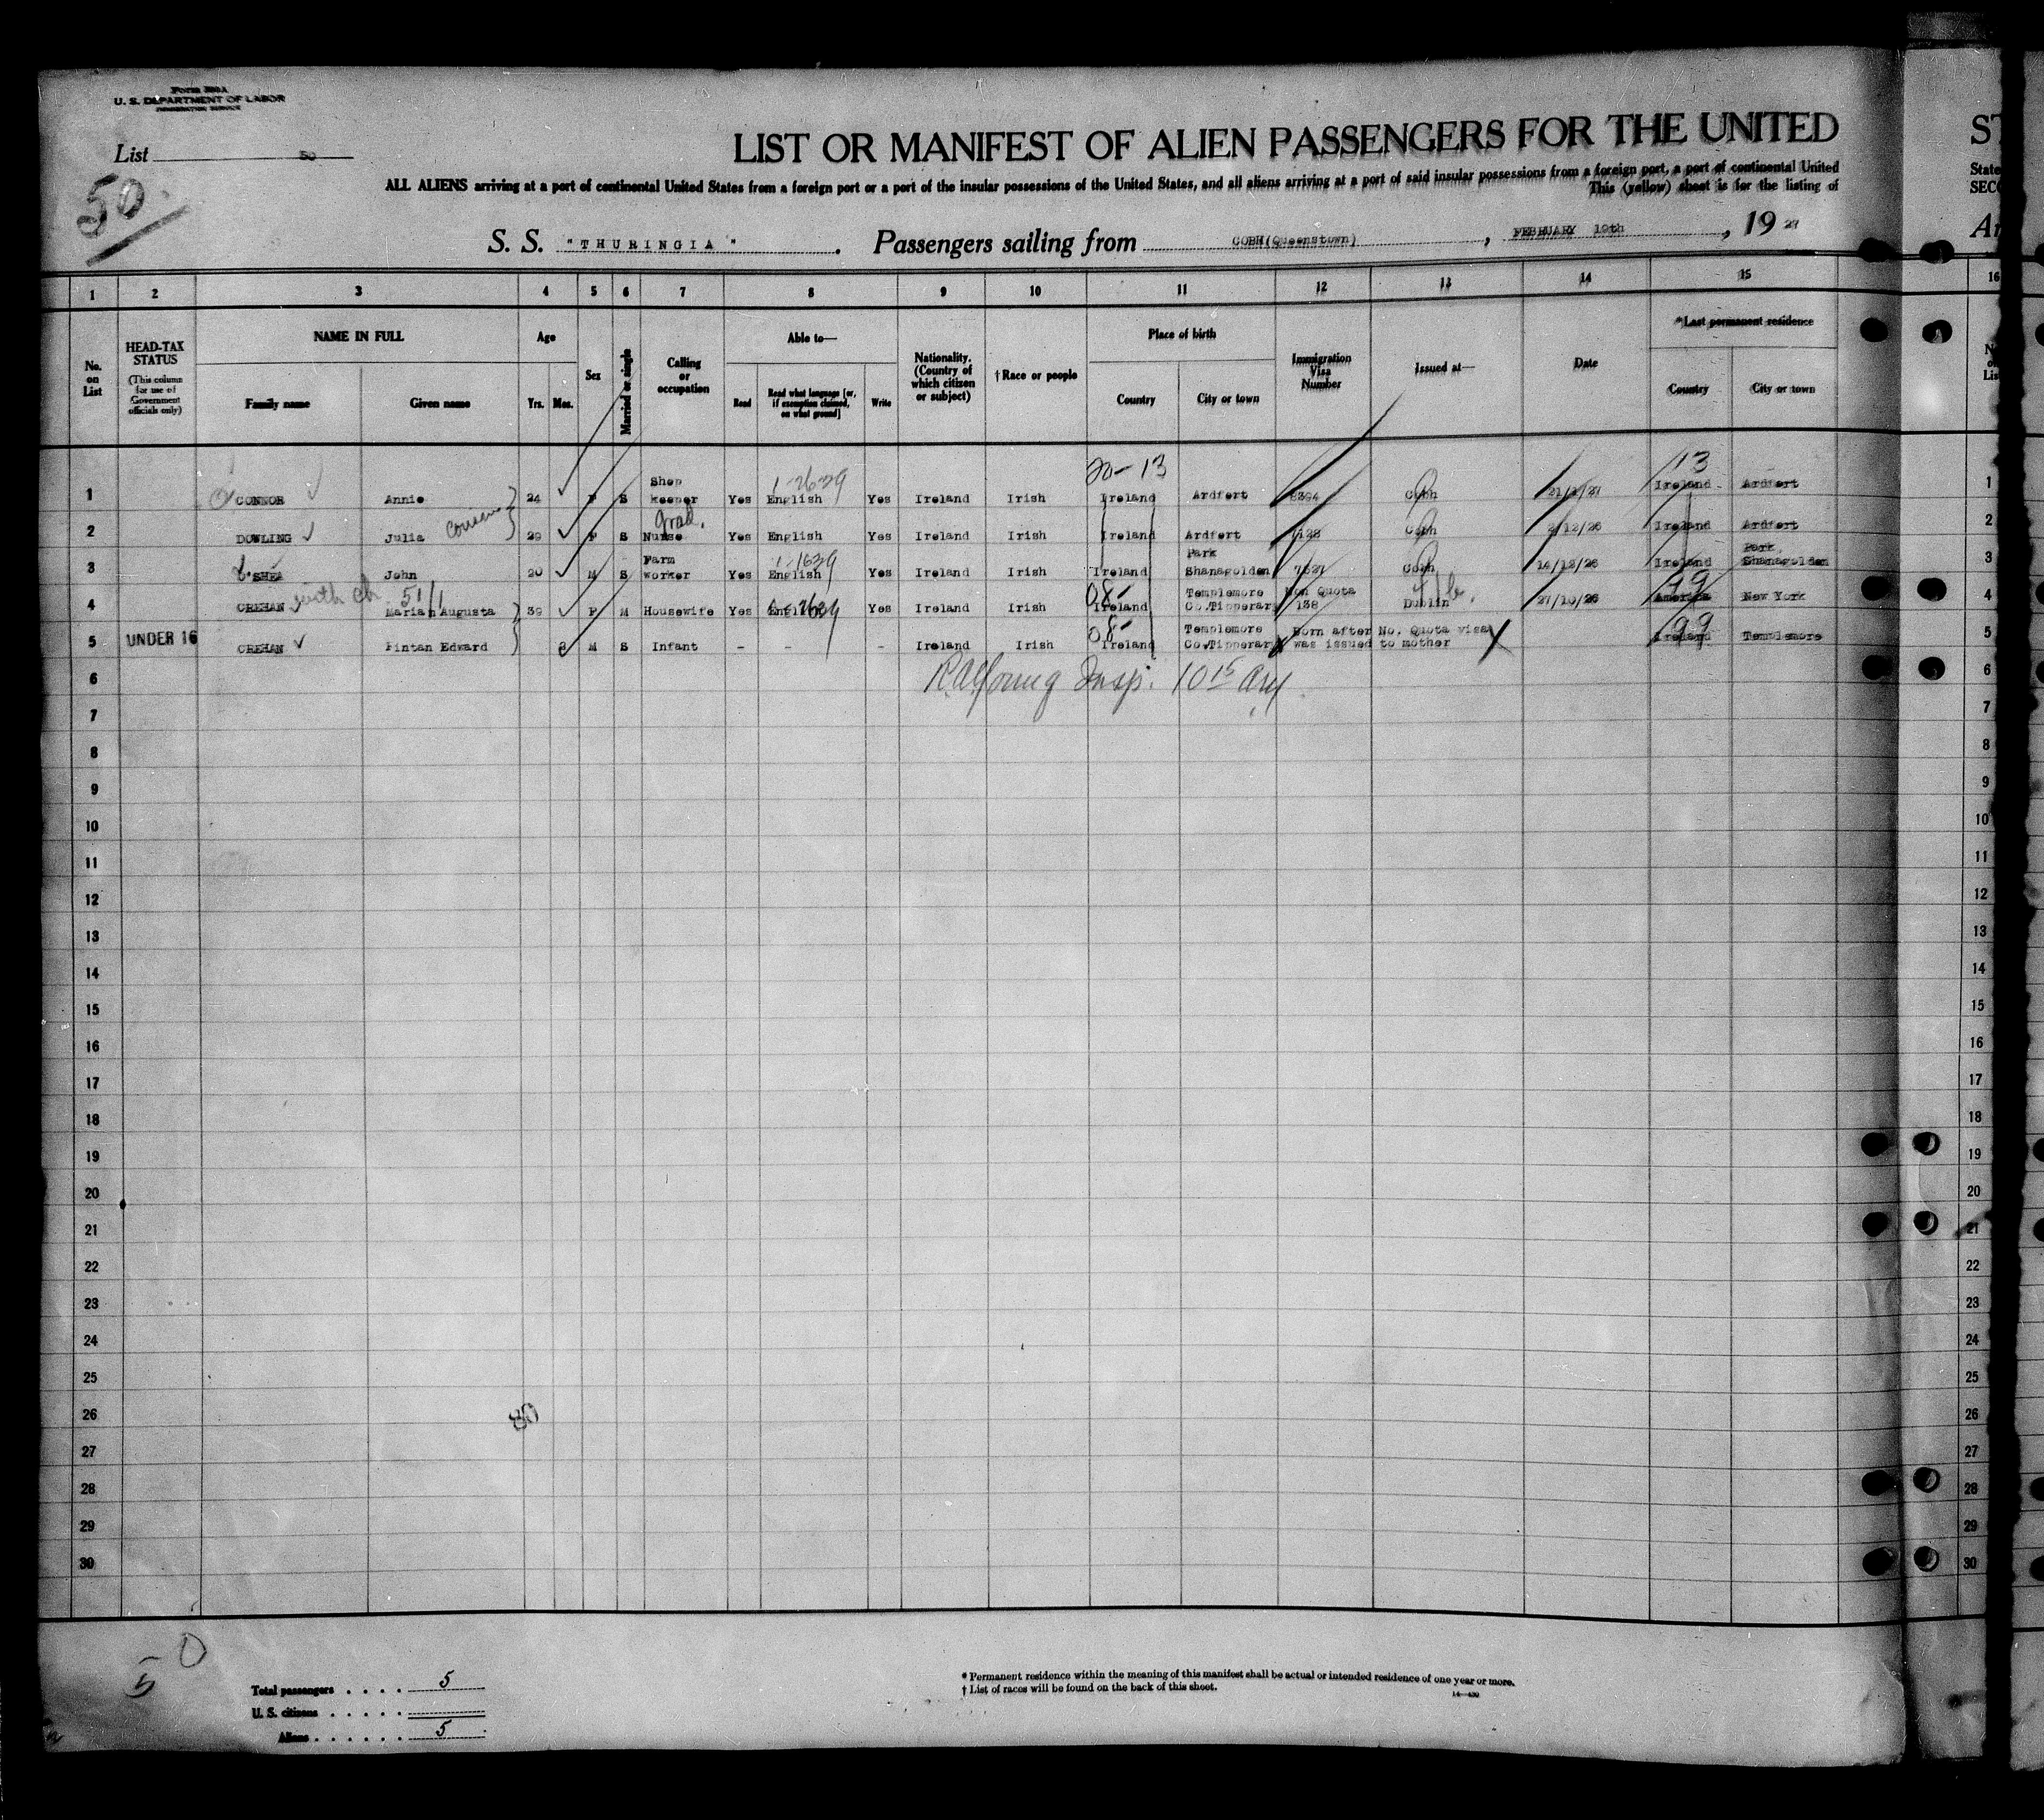 Form 500A
U. S. DEPARTMENT OF LABOR
IMMIGRATION SERVICE
List 50
50.
LIST OR MANIFEST OF ALIEN PASSENGERS FOR THE UNITED
ST
ALL ALIENS arriving at a port of continental United States from a foreign port or a port of the insular possessions of the United States, and all aliens arriving at a port of said insular possessions from a foreign port, a port of continental United
State
This (yellow) sheet is for the listing of
SECO
S. S. "THURINGIA". Passengers sailing from COBH(Queenstown), FEBRUARY 19th, 1927
1 2 3 4 5 6 7 8 9 10 11 12 13 14 15 16
No. on List
HEAD-TAX STATUS
(This column for use of Government officials only)
NAME IN FULL
Family name Given name
Age
Yrs. Mos.
Sex
Married or single
Calling or occupation
Able to—
Read
Read what language [or, if exemption claimed, on what ground]
Write
Nationality. (Country of which citizen or subject)
† Race or people
Place of birth
Country City or town
Immigration Visa Number
Issued at—
Date
*Last permanent residence
Country City or town
20-13 13
1 O'CONNOR Annie 24 F S Shop keeper Yes English Yes Ireland Irish Ireland Ardfert 8394 Cobh 21/1/27 Ireland Ardfert 1
2 DOWLING Julia cousins 29 F S grad. Nurse Yes English Yes Ireland Irish Ireland Ardfert Cobh 2/12/26 Ireland Ardfert 2
3 O'SHEA John 20 M S Farm worker Yes English Yes Ireland Irish Ireland Park Shanagolden 7627 Cobh 14/12/26 Ireland Park Shanagolden 3
with ch 51/1 08- 99
4 CREHAN Marian Augusta 39 F M Housewife Yes English Yes Ireland Irish Ireland Templemore Co.Tipperary Non Quota 138 Dublin 27/10/26 America New York 4
08- 99
5 UNDER 16 CREHAN Fintan Edward M S Infant - - - Ireland Irish Ireland Templemore Co.Tipperary Born after No. Quota visa was issued to mother Ireland Templemore 5
6 6
7 7
8 8
9 9
10 10
11 11
12 12
13 13
14 14
15 15
16 16
17 17
18 18
19 19
20 20
21 21
22 22
23 23
24 24
25 25
26 26
27 27
28 28
29 29
30 30
50
Total passengers . . . . 5
U. S. citizens . . . . .
Aliens . . . . . . 5
* Permanent residence within the meaning of this manifest shall be actual or intended residence of one year or more.
† List of races will be found on the back of this sheet.